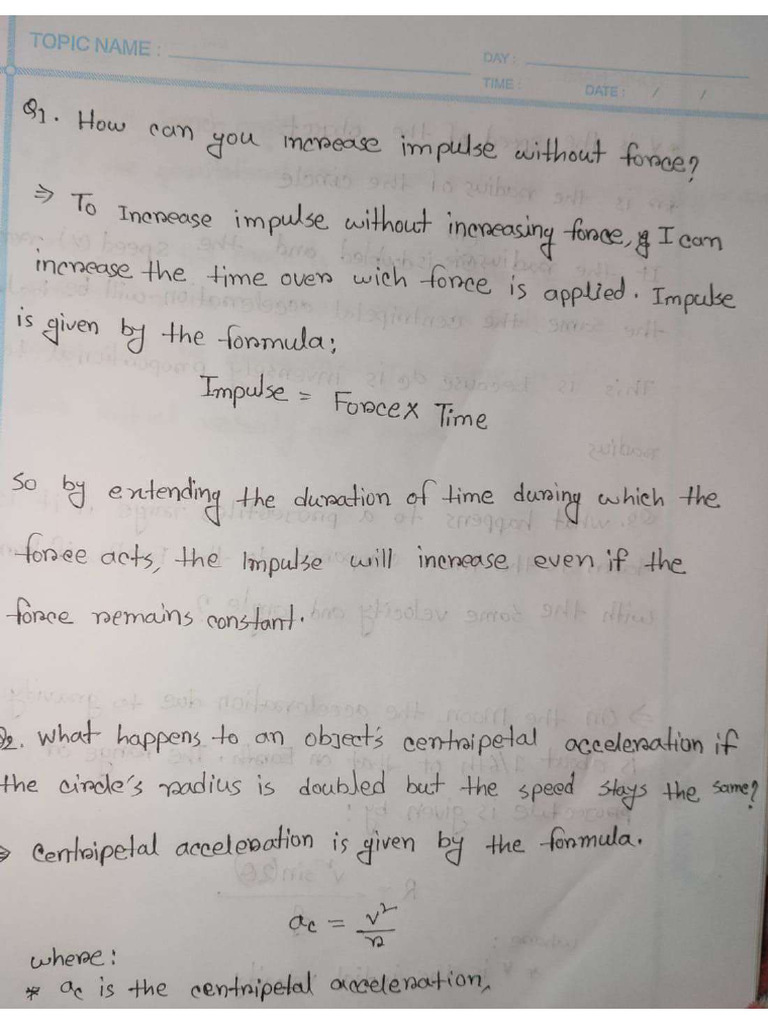 TOPIC NAME :
DAY :
TIME : DATE : / /
Q1. How can you increase impulse without force?
⇒ To Increase impulse without increasing force, I can
increase the time over wich force is applied. Impulse
is given by the formula;
Impulse = Force × Time
So by extending the duration of time during which the
force acts, the Impulse will increase even if the
force remains constant.
Q2. What happens to an object's centripetal acceleration if
the circle's radius is doubled but the speed stays the same?
⇒ Centripetal acceleration is given by the formula.
ac = v²/r
where:
* ac is the centripetal acceleration,